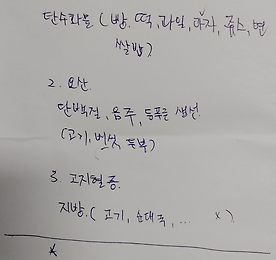 탄수화물 (빵, 떡, 과일, 과자, 쥬스, 면
쌀밥)
2. 요산
단백질, 음주, 등푸른 생선
(고기, 버섯, 두부)
3. 고지혈증.
지방. ( 고기, 순대국, ... x )